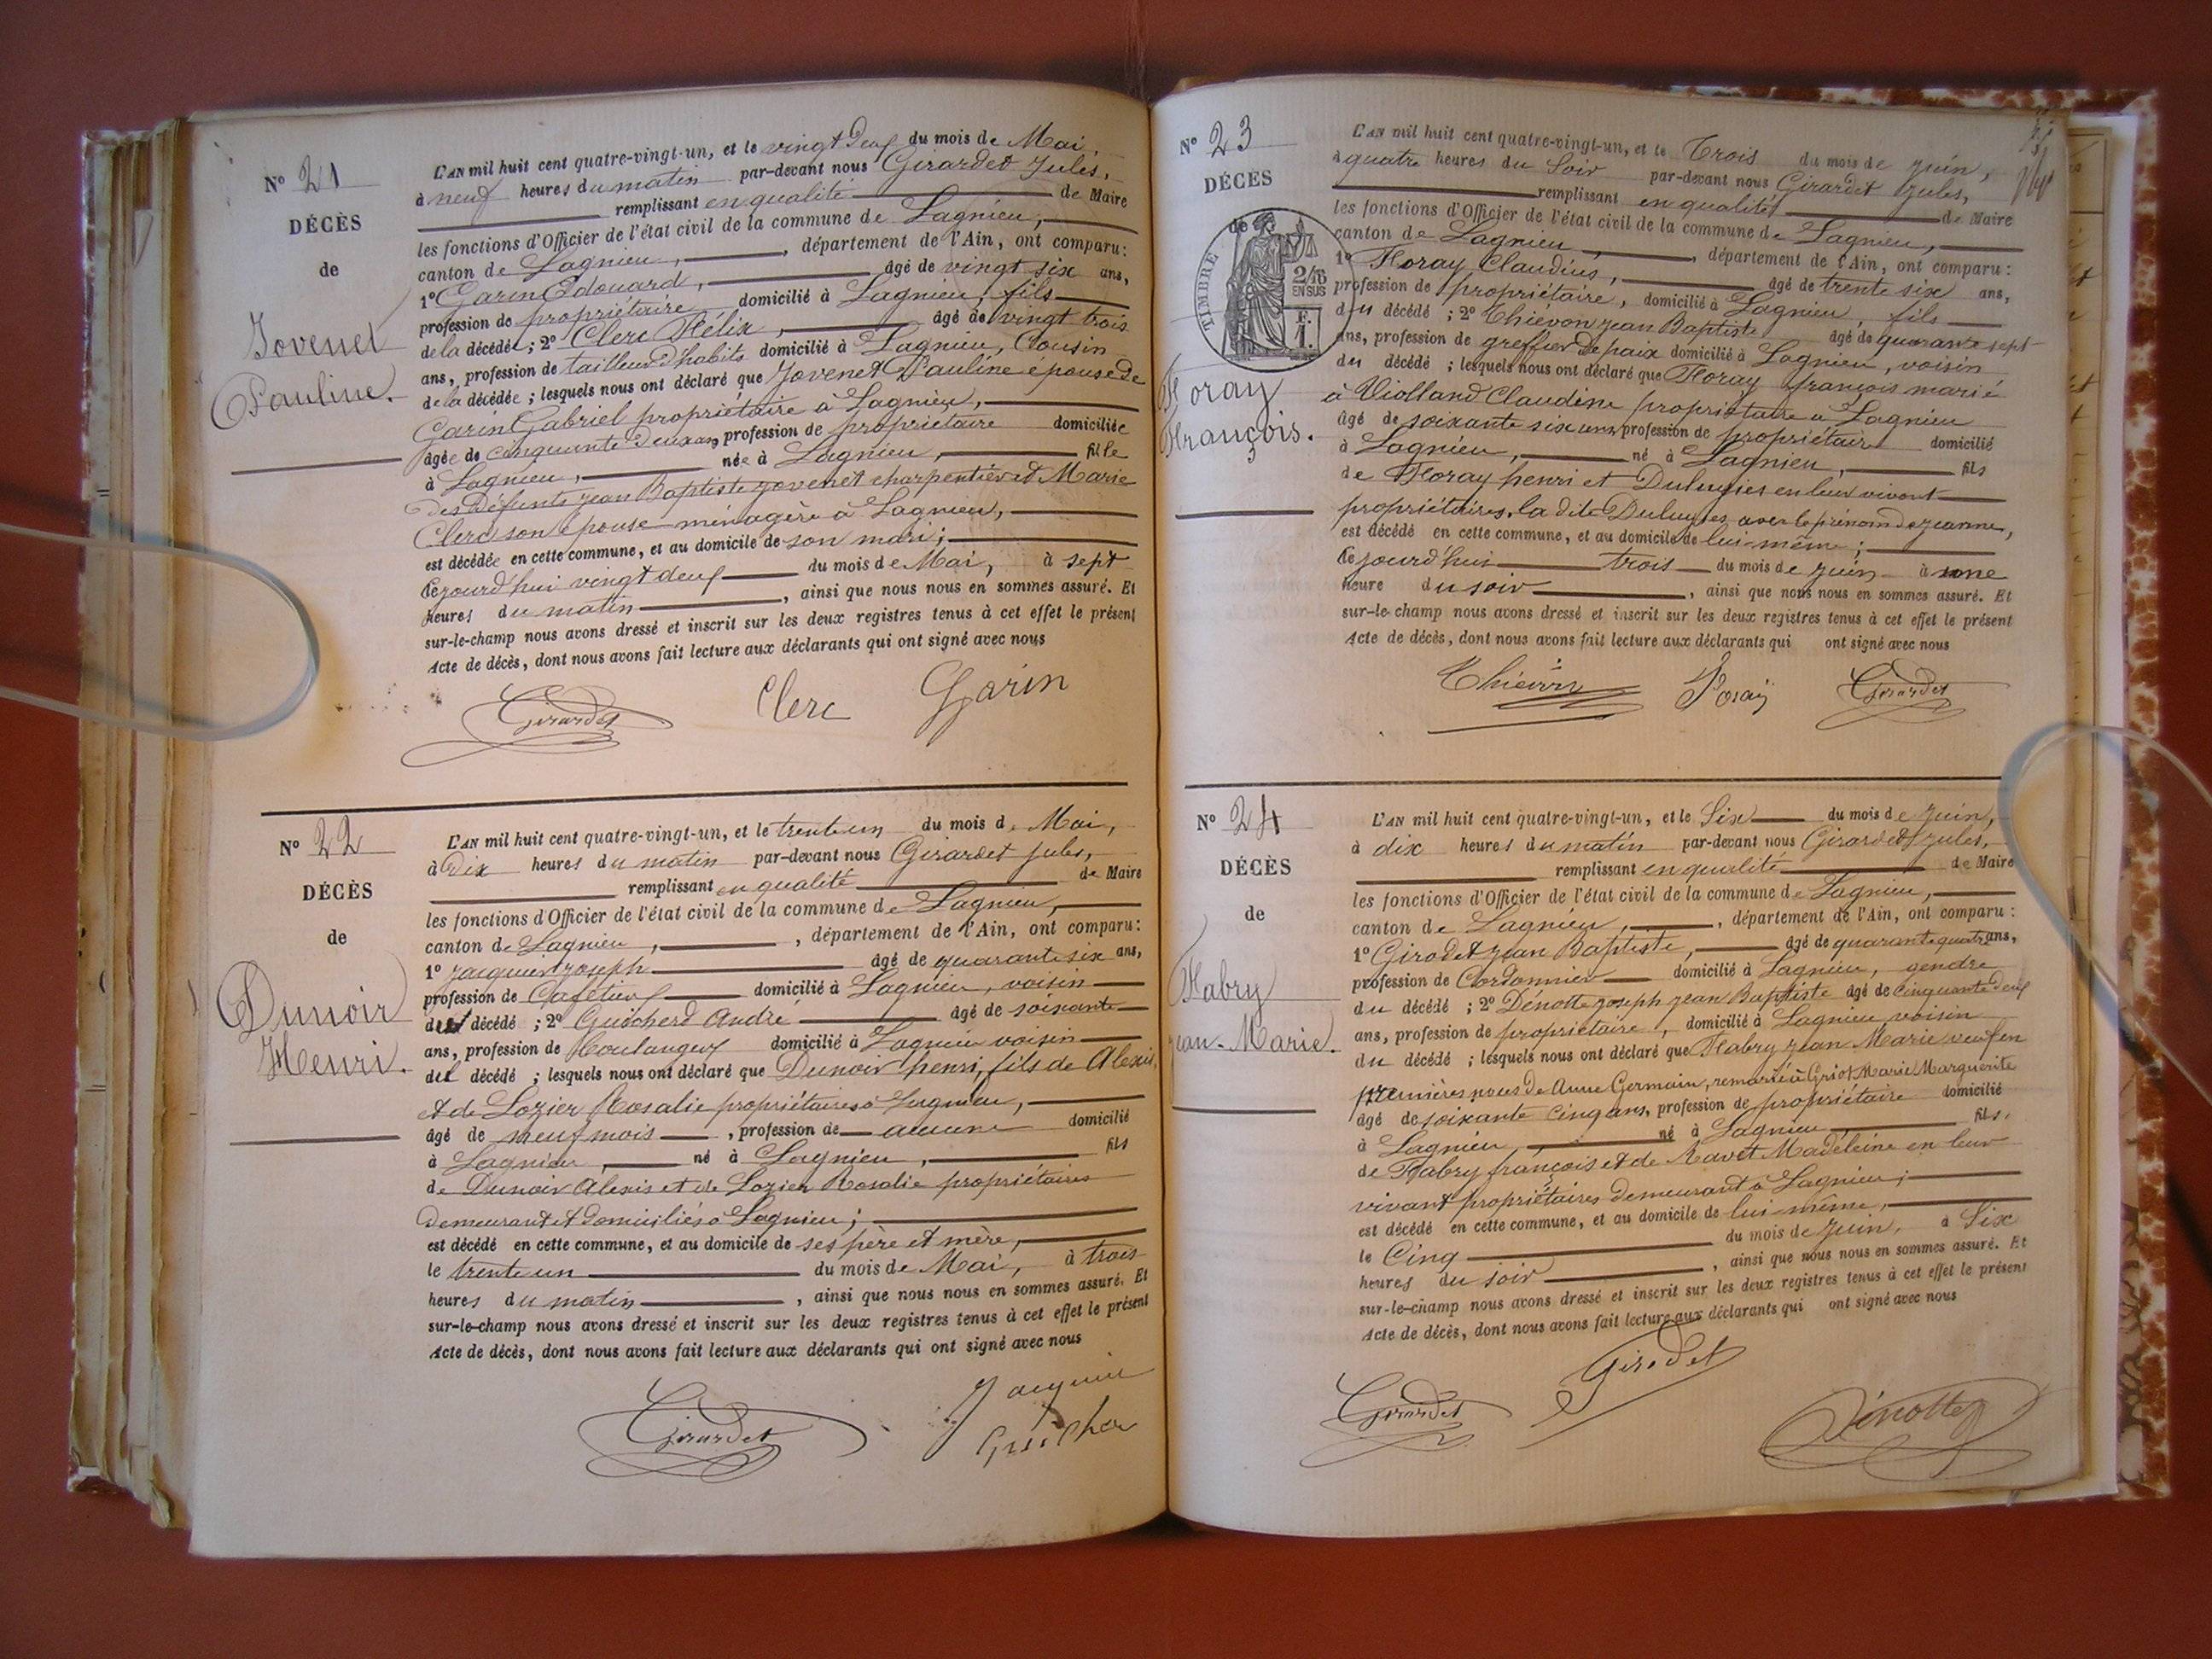 N° 21
DÉCÈS
de
Jovenet
Pauline.
L'AN mil huit cent quatre-vingt-un, et le vingt deux du mois de Mai,
à neuf heures du matin par-devant nous Girardet Jules,
remplissant en qualité de Maire
les fonctions d'Officier de l'état civil de la commune de Lagnieu,
canton de Lagnieu, département de l'Ain, ont comparu:
1° Garin Edouard, âgé de vingt six ans,
profession de propriétaire domicilié à Lagnieu, fils
de la décédée; 2° Clerc Félix, âgé de vingt trois
ans, profession de tailleur d'habits domicilié à Lagnieu, Cousin
de la décédée; lesquels nous ont déclaré que Jovenet Pauline épouse de
Garin Gabriel propriétaire à Lagnieu,
âgée de cinquante deux ans, profession de propriétaire domiciliée
à Lagnieu, née à Lagnieu, fille
des Défunts Jean Baptiste Jovenet charpentier et Marie
Clerc son épouse ménagère à Lagnieu,
est décédée en cette commune, et au domicile de son mari;
Cejourd'hui vingt deux du mois de Mai, à sept
heures du matin, ainsi que nous nous en sommes assuré. Et
sur-le-champ nous avons dressé et inscrit sur les deux registres tenus à cet effet le présent
Acte de décès, dont nous avons fait lecture aux déclarants qui ont signé avec nous
Girardet Clerc Garin
N° 22
DÉCÈS
de
Dunoir
Henri.
L'AN mil huit cent quatre-vingt-un, et le trente un du mois de Mai,
à Dix heures du matin par-devant nous Girardet Jules,
remplissant en qualité de Maire
les fonctions d'Officier de l'état civil de la commune de Lagnieu,
canton de Lagnieu, département de l'Ain, ont comparu:
1° Jacquier Joseph âgé de quarante six ans,
profession de Cafetier domicilié à Lagnieu, voisin
du décédé; 2° Guicherd André âgé de soixante
ans, profession de Boulanger domicilié à Lagnieu voisin
du décédé; lesquels nous ont déclaré que Dunoir henri, fils de Alexis
et de Lozier Rosalie propriétaires à Lagnieu,
âgé de neuf mois, profession de aucune domicilié
à Lagnieu, né à Lagnieu, fils
de Dunoir Alexis et de Lozier Rosalie propriétaires
demeurant et domiciliés à Lagnieu;
est décédé en cette commune, et au domicile de ses père et mère,
le trente un du mois de Mai, à trois
heures du matin, ainsi que nous nous en sommes assuré. Et
sur-le-champ nous avons dressé et inscrit sur les deux registres tenus à cet effet le présent
Acte de décès, dont nous avons fait lecture aux déclarants qui ont signé avec nous
Girardet
N° 23
DÉCÈS
de
TIMBRE
2/10
EN SUS
F.
1.
Foray
François.
L'AN mil huit cent quatre-vingt-un, et le Trois du mois de juin,
à quatre heures du Soir par-devant nous Girardet Jules,
remplissant en qualités de Maire
les fonctions d'Officier de l'état civil de la commune de Lagnieu,
canton de Lagnieu, département de l'Ain, ont comparu:
1° Foray Claudius, âgé de trente six ans,
profession de propriétaire, domicilié à Lagnieu, fils
du décédé; 2° Thievon Jean Baptiste âgé de quarante sept
ans, profession de greffier de paix domicilié à Lagnieu, voisin
du décédé; lesquels nous ont déclaré que Foray françois marié
à Violland Claudine propriétaire à Lagnieu
âgé de soixante six ans, profession de propriétaire domicilié
à Lagnieu, né à Lagnieu, fils
de Foray henri et en leur vivant
propriétaires, la dite avec le prénom de jeanne,
est décédé en cette commune, et au domicile de lui-même;
Cejourd'hui trois du mois de juin à une
heure du soir, ainsi que nous nous en sommes assuré. Et
sur-le-champ nous avons dressé et inscrit sur les deux registres tenus à cet effet le présent
Acte de décès, dont nous avons fait lecture aux déclarants qui ont signé avec nous
Thiévon Foray Girardet
N° 24
DÉCÈS
de
Fabry
Jean-Marie.
L'AN mil huit cent quatre-vingt-un, et le Six du mois de juin,
à dix heures du matin par-devant nous Girardet Jules,
remplissant en qualité de Maire
les fonctions d'Officier de l'état civil de la commune de Lagnieu,
canton de Lagnieu, département de l'Ain, ont comparu:
1° Girodet Jean Baptiste, âgé de quarante quatre ans,
profession de Cordonnier domicilié à Lagnieu, gendre
du décédé; 2° Dénotte Joseph Jean Baptiste âgé de cinquante deux
ans, profession de propriétaire, domicilié à Lagnieu voisin
du décédé; lesquels nous ont déclaré que Fabry Jean Marie veuf en
premières noces de Anne Germain, remarié à Griot Marie Marguerite
âgé de soixante cinq ans, profession de propriétaire domicilié
à Lagnieu, né à Lagnieu fils,
de Fabry françois et de Ravet Madeleine en leur
vivant propriétaires demeurant à Lagnieu;
est décédé en cette commune, et au domicile de lui-même,
le Cinq du mois de juin, à Six
heures du soir, ainsi que nous nous en sommes assuré. Et
sur-le-champ nous avons dressé et inscrit sur les deux registres tenus à cet effet le présent
Acte de décès, dont nous avons fait lecture aux déclarants qui ont signé avec nous
Girardet Girodet Dénotte